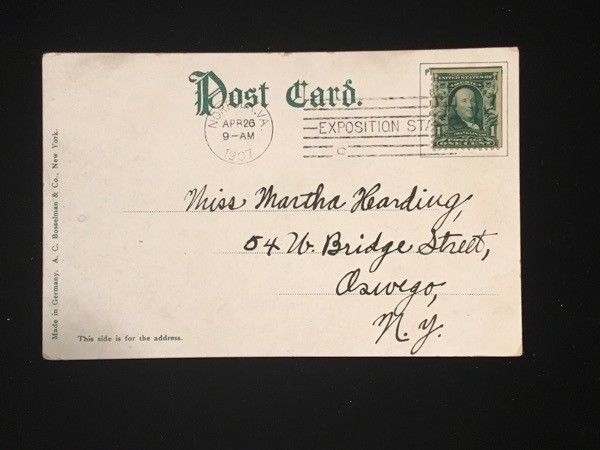 Post Card.
NORFOLK, VA
APR 26
9-AM
1907
EXPOSITION STA
UNITED STATES OF AMERICA
FRANKLIN
ONE CENT
Miss Martha Harding,
54 W. Bridge Street,
Oswego,
N.Y.
This side is for the address.
Made in Germany. A. C. Bosselman & Co., New York.